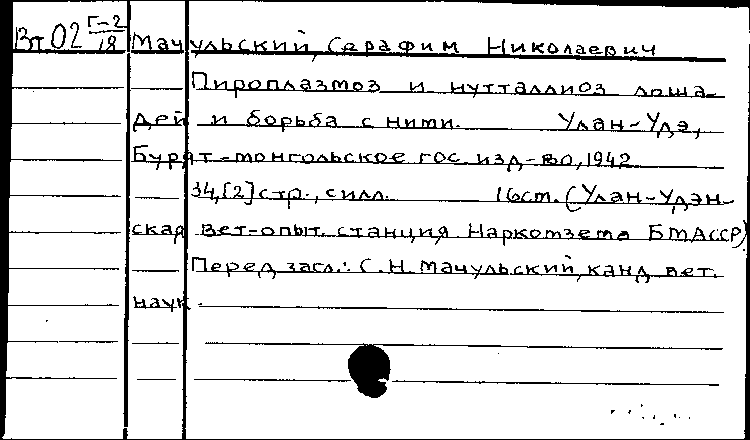 Вт 02 Г-2/18 Мачульский, Серафим Николаевич
Пироплазмоз и нутталлиоз лоша-
дей и борьба с ними. Улан-Удэ,
Бурят-монгольское гос. изд-во, 1942
34, [2] стр., с илл. 16 см. (Улан-Удэн-
ская вет-опыт. станция Наркомзема БМАССР)
Перед загл.: С.Н. Мачульский, канд. вет.
наук.